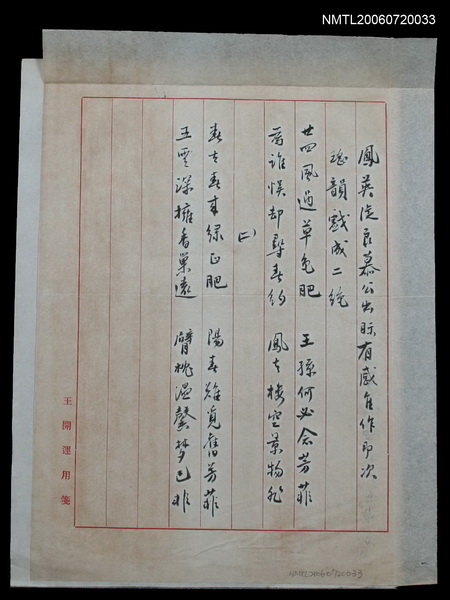 NMTL20060720033
鳳英從良慕公出眎有感佳作即次
瑤韻戲成二絶
廿四風過草色肥 王孫何必念芳菲
為誰悞却尋春約 鳳去樓空景物非
(二)
春去春來綠正肥 陽春難覓舊芳菲
五雲深擁香巢遠 臂枕溫馨夢已非
王開運用箋
NMTL20060720033